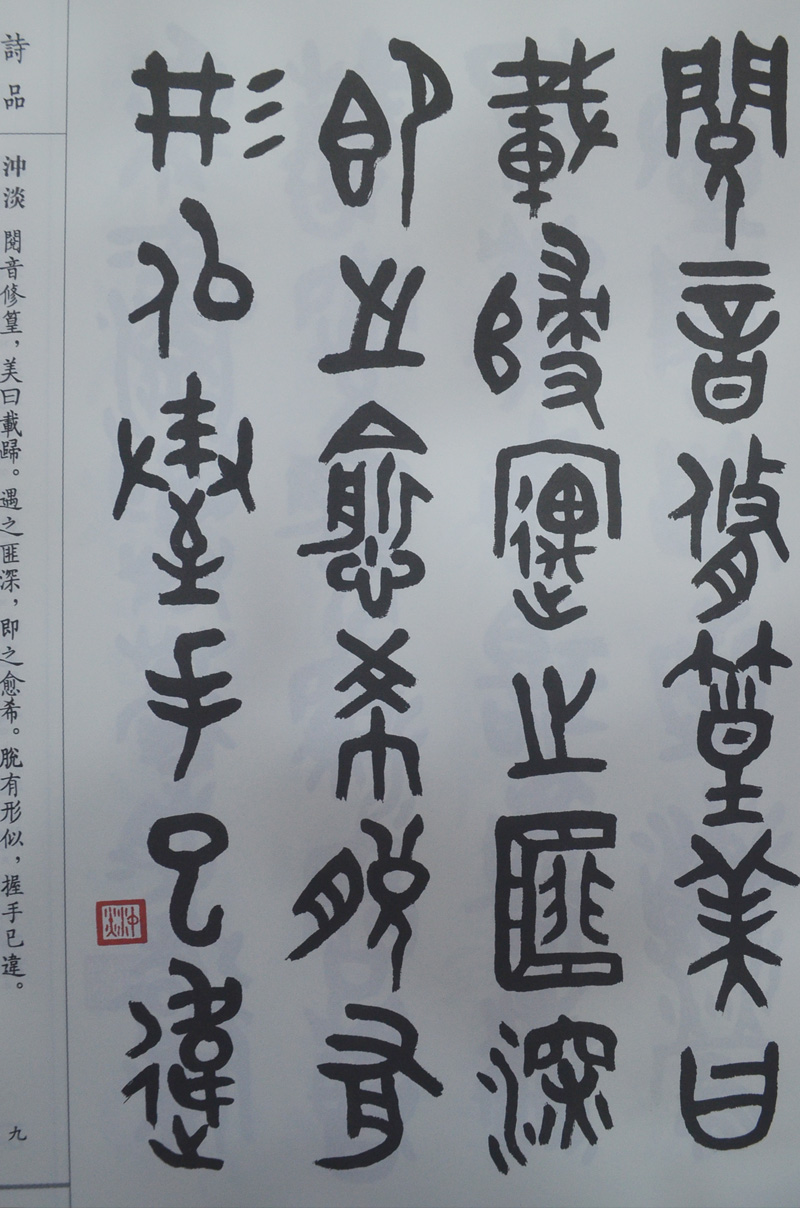 閱音修篁美曰
載歸遇之匪深
即之愈希脫有
形似握手巳違
沖淡
詩品
沖淡 閱音修篁，美曰載歸。遇之匪深，即之愈希。脫有形似，握手巳違。
九